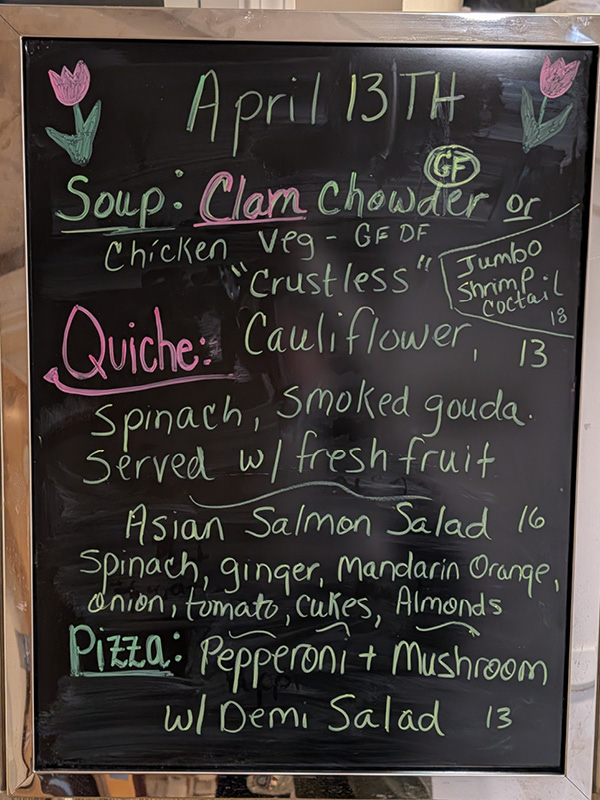 April 13TH
GF
Soup: Clam Chowder or
Chicken Veg - GF DF
Jumbo
Shrimp
Coctail
18
"Crustless"
Quiche: Cauliflower, 13
Spinach, Smoked gouda.
Served w/ fresh fruit
Asian Salmon Salad 16
Spinach, ginger, Mandarin Orange,
onion, tomato, cukes, Almonds
Pizza: Pepperoni + Mushroom
w/ Demi Salad 13